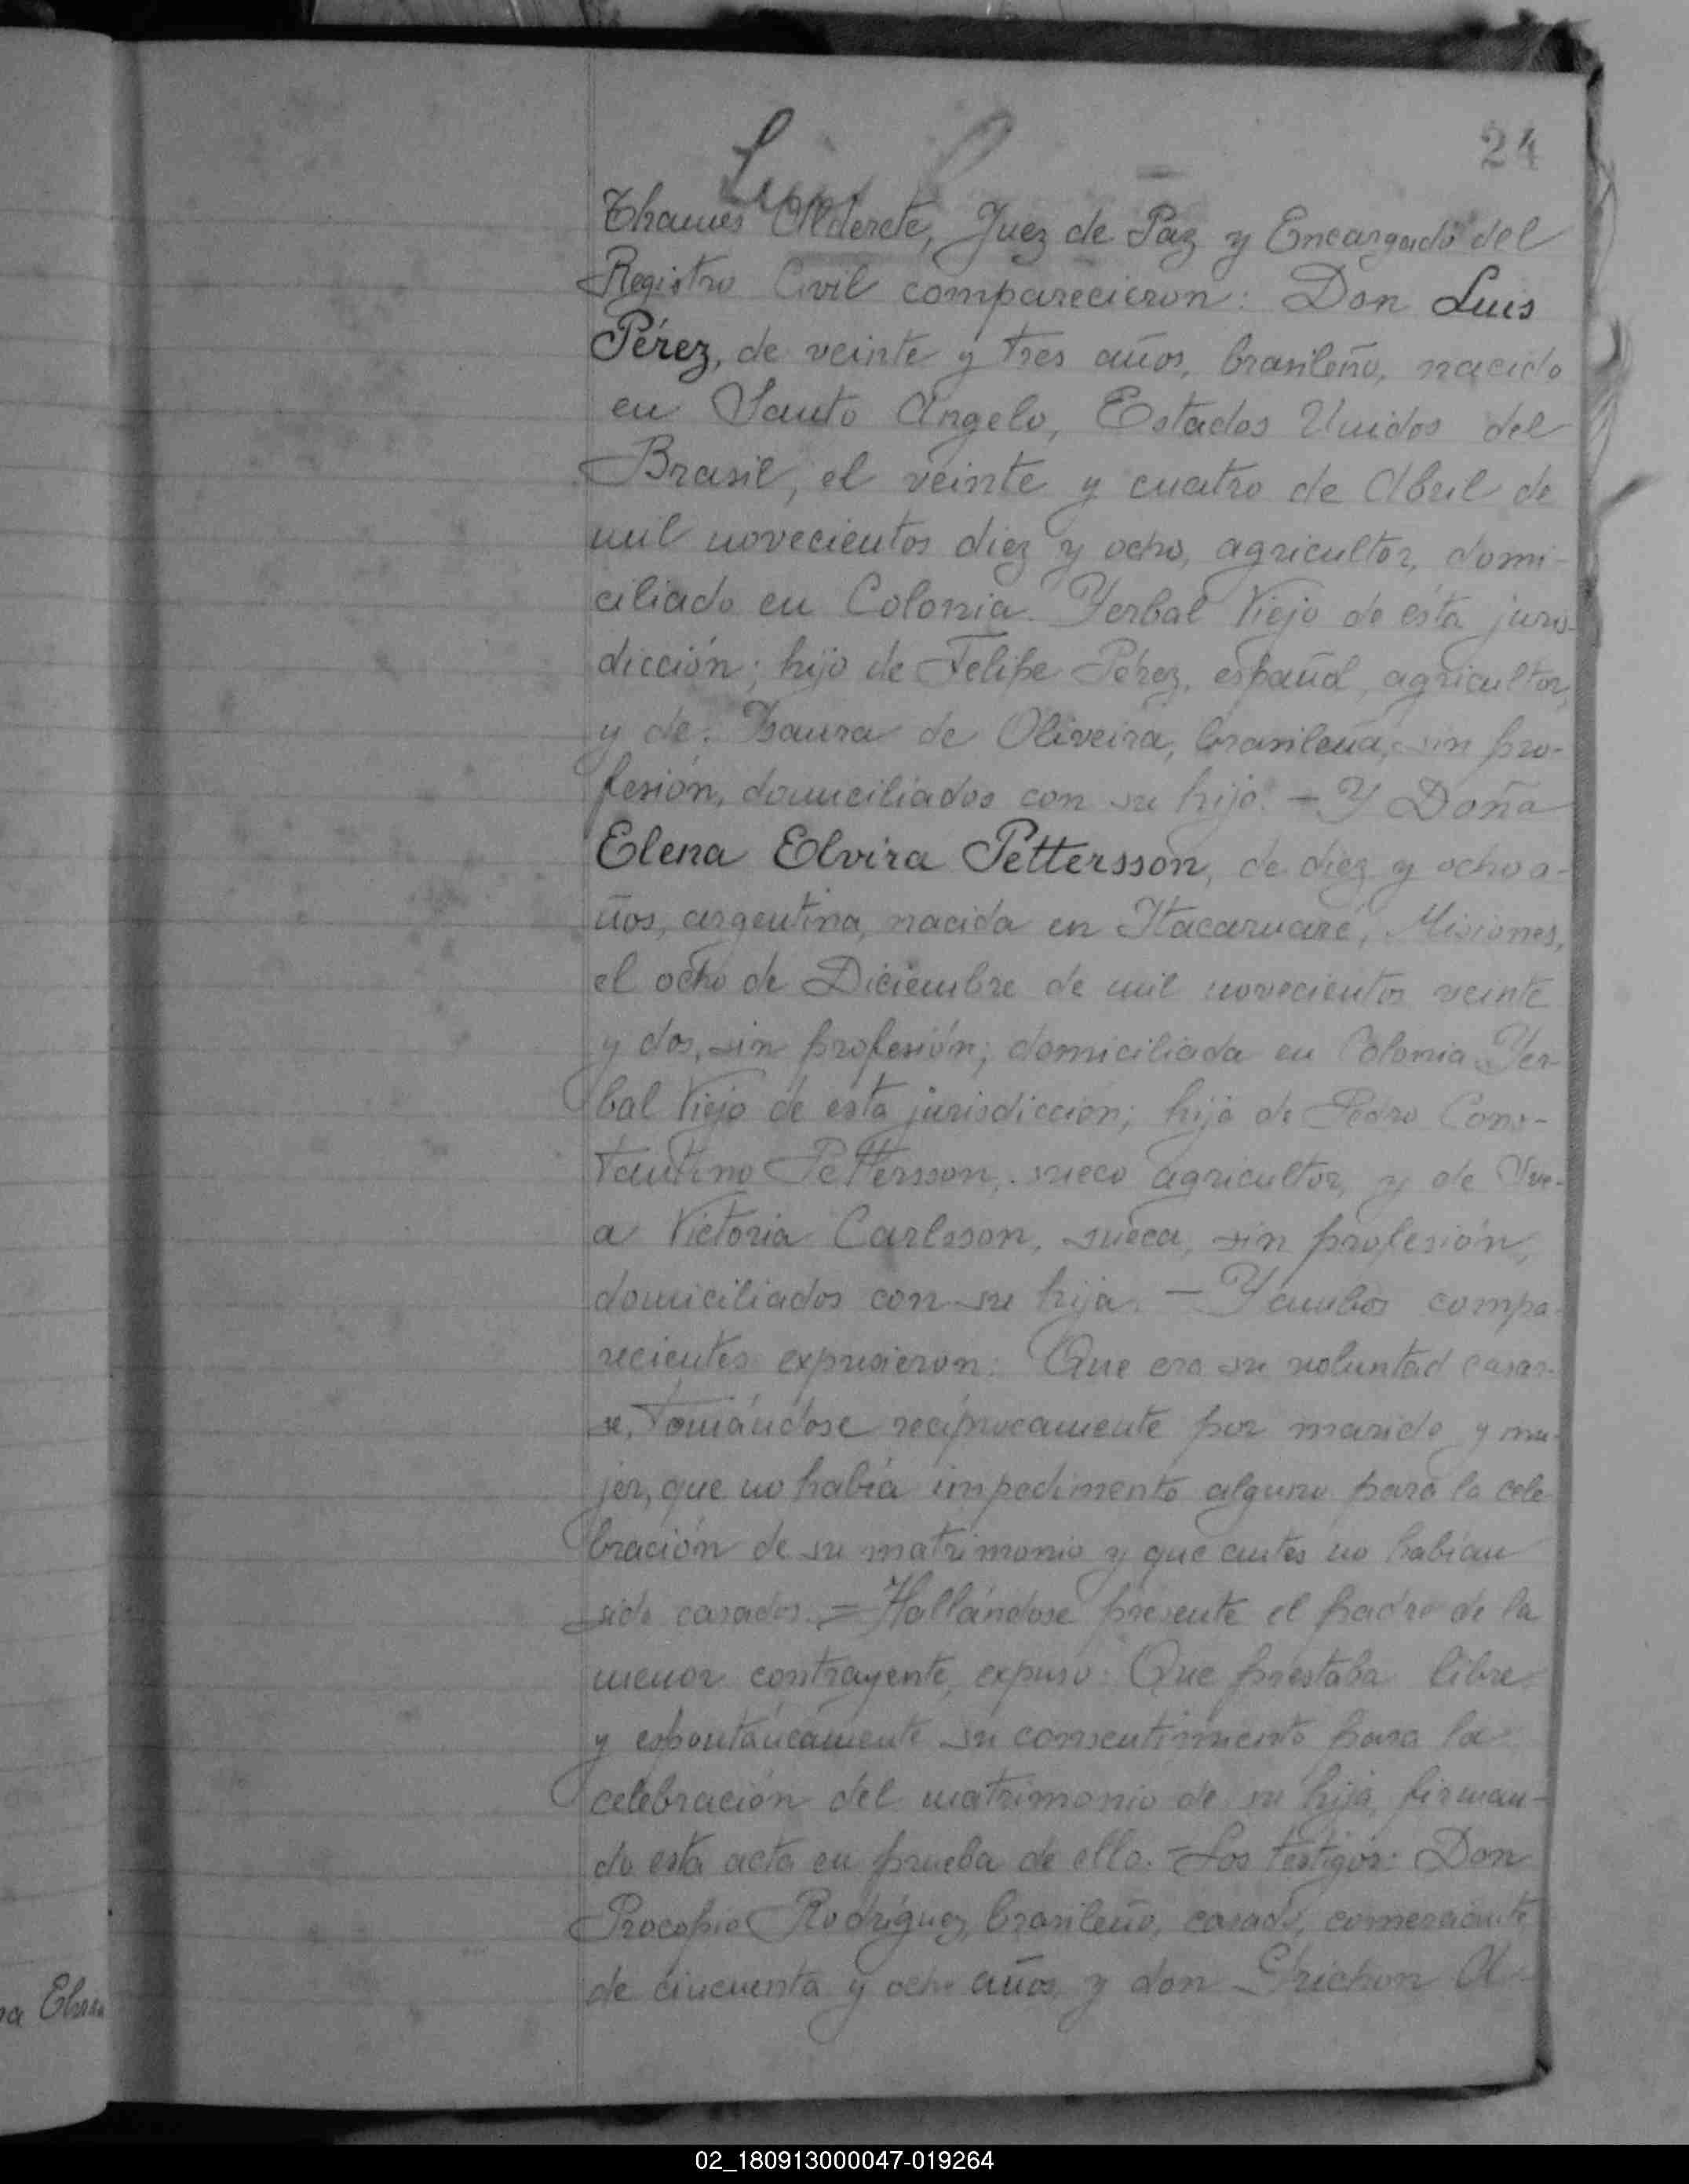 24
Thames Alderete, Juez de Paz y Encargado del
Registro Civil comparecieron: Don Luis
Pérez, de veinte y tres años, brasileño, nacido
en Santo Angelo, Estados Unidos del
Brasil, el veinte y cuatro de Abril de
mil novecientos diez y ocho, agricultor, domi-
ciliado en Colonia Yerbal Viejo de ésta juris-
dicción; hijo de Felipe Pérez, español, agricultor,
y de Isaura de Oliveira, brasileña, sin pro-
fesión, domiciliados con su hijo. — Y Doña
Elena Elvira Pettersson, de diez y ocho a-
ños, argentina, nacida en Itacaruaré, Misiones,
el ocho de Diciembre de mil novecientos veinte
y dos, sin profesión; domiciliada en Colonia Yer-
bal Viejo de esta jurisdiccion; hija de Pedro Cons-
tantino Pettersson, sueco agricultor, y de Sve-
a Victoria Carlsson, sueca, sin profesión,
domiciliados con su hija. — Y ambos compa-
recientes expusieron: Que era su voluntad casar-
se, tomándose recíprocamente por marido y mu-
jer, que no había impedimento alguno para la cele-
bración de su matrimonio y que antes no habían
sido casados. = Hallándose presente el padre de la
menor contrayente, expuso: Que prestaba libre
y espontáneamente su consentimiento para la
celebración del matrimonio de su hija, firman-
do esta acta en prueba de ello. = Los testigos: Don
Procopio Rodríguez, brasileño, casado, comerciante,
de cincuenta y ocho años, y don
na Elena
02_180913000047-019264